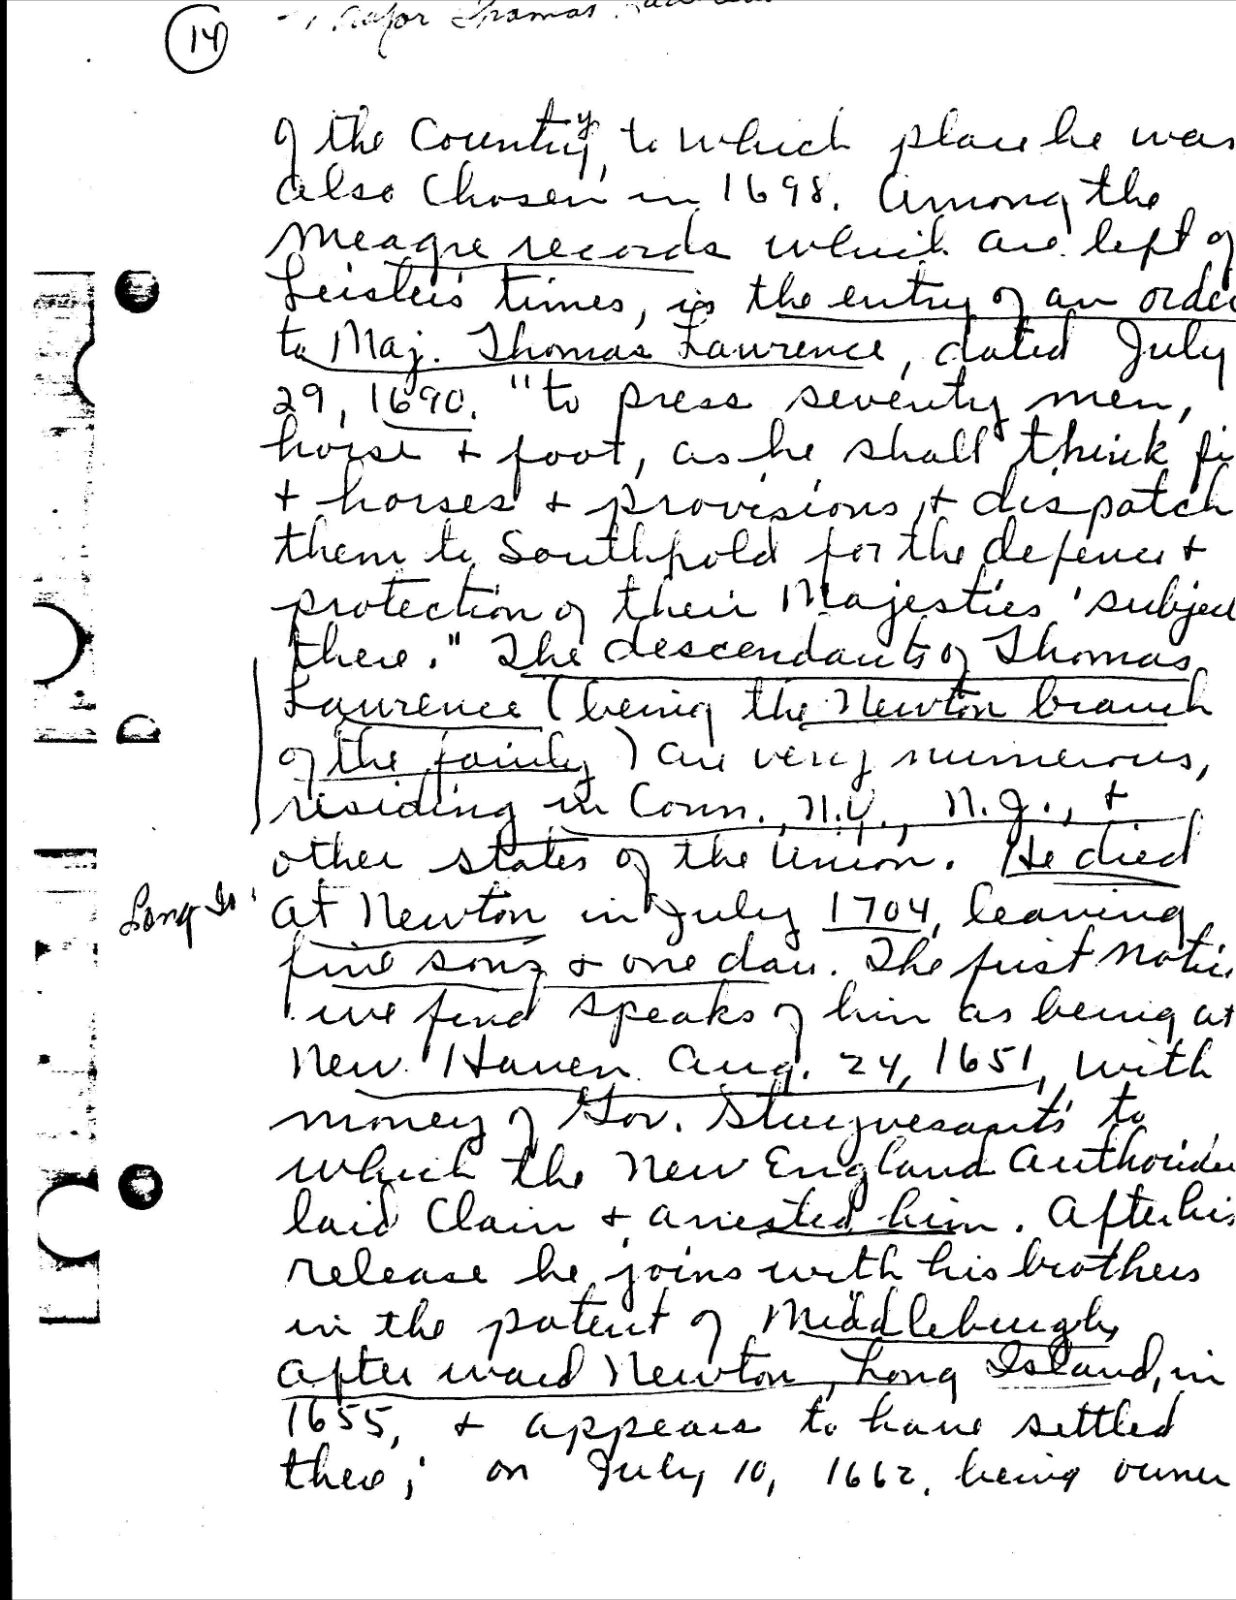 14
Major Thomas
of the County, to which place he was
also chosen in 1698. Among the
meagre records which are left of
Leisler's times, is the entry of an order
to Maj. Thomas Lawrence, dated July
29, 1690. "to press seventy men,
horse + foot, as he shall think fi
+ horses + provisions, + dispatch
them to Southhold for the defence +
protection of their Majesties' subject
there." The descendants of Thomas
Lawrence (being the Newton branch
of the family) are very numerous,
residing in Conn., N.Y., N.J., +
other states of the Union. He died
Long Is. at Newton in July 1704, leaving
five sons + one dau. The first notice
we find speaks of him as being at
New Haven Aug. 24, 1651, with
money of Gov. Stuyvesant's to
which the New England Authorities
laid claim + arrested him. After his
release he joins with his brothers
in the patent of Middleburgh,
afterward Newton, Long Island, in
1655, + appears to have settled
there; on July 10, 1662, being owner